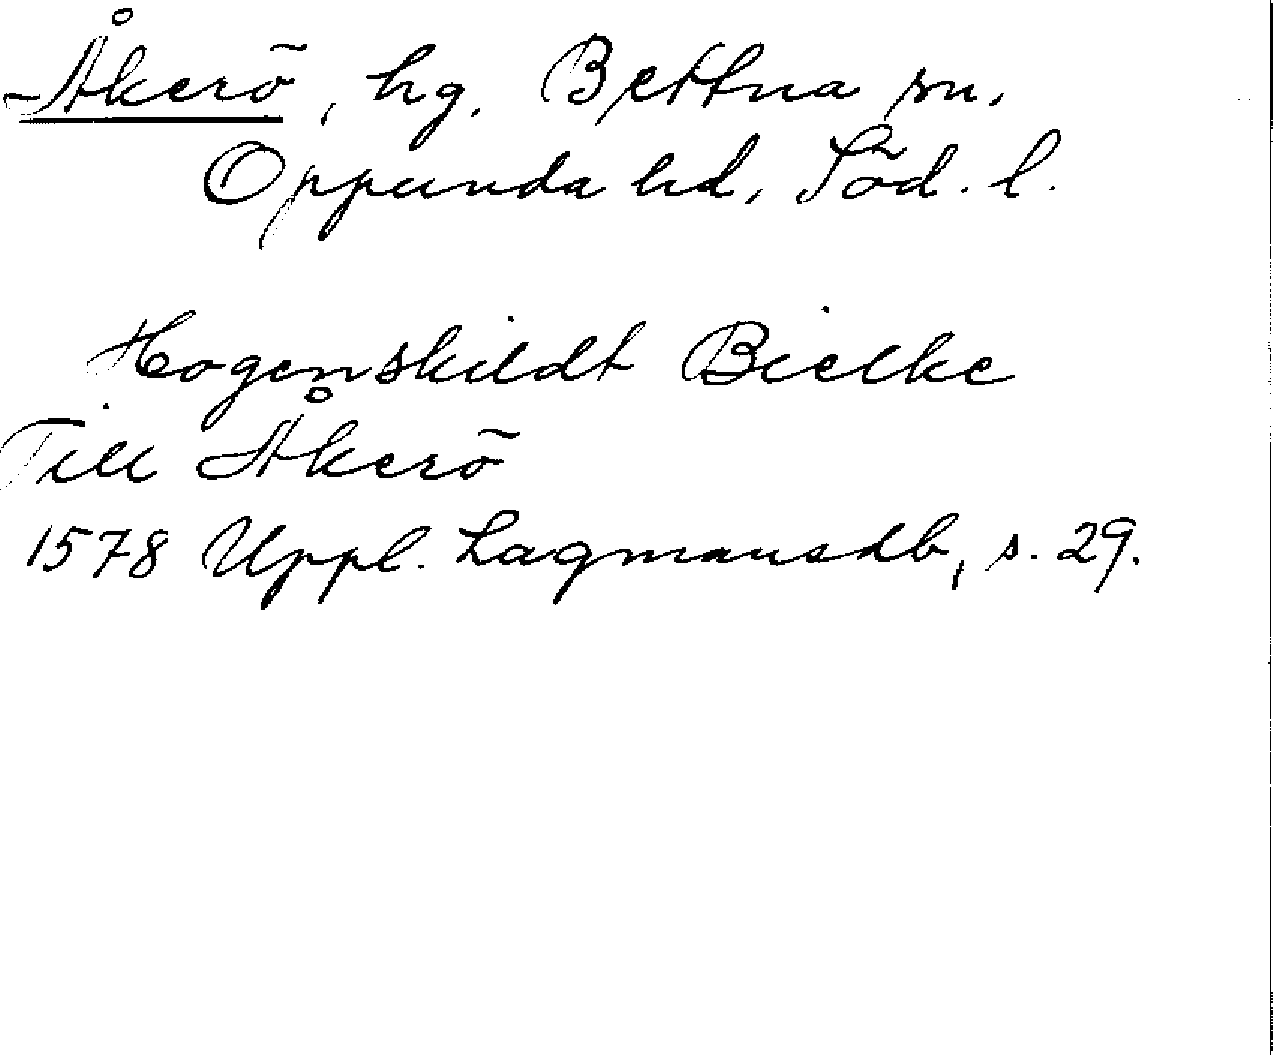 Åkerö, hg, Bettna sn,
Oppunda hd, Söd. l.
Hogenskildt Bielke
Till Åkerö
1578 Uppl. Lagmansdb, s. 29.